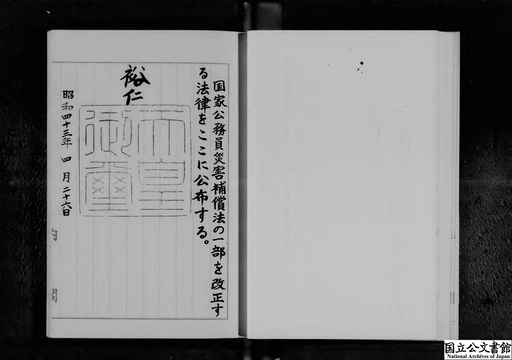 国家公務員災害補償法の一部を改正す
る法律をここに公布する。
裕仁
天皇
御璽
昭和四十三年四月二十六日
国立公文書館
National Archives of Japan